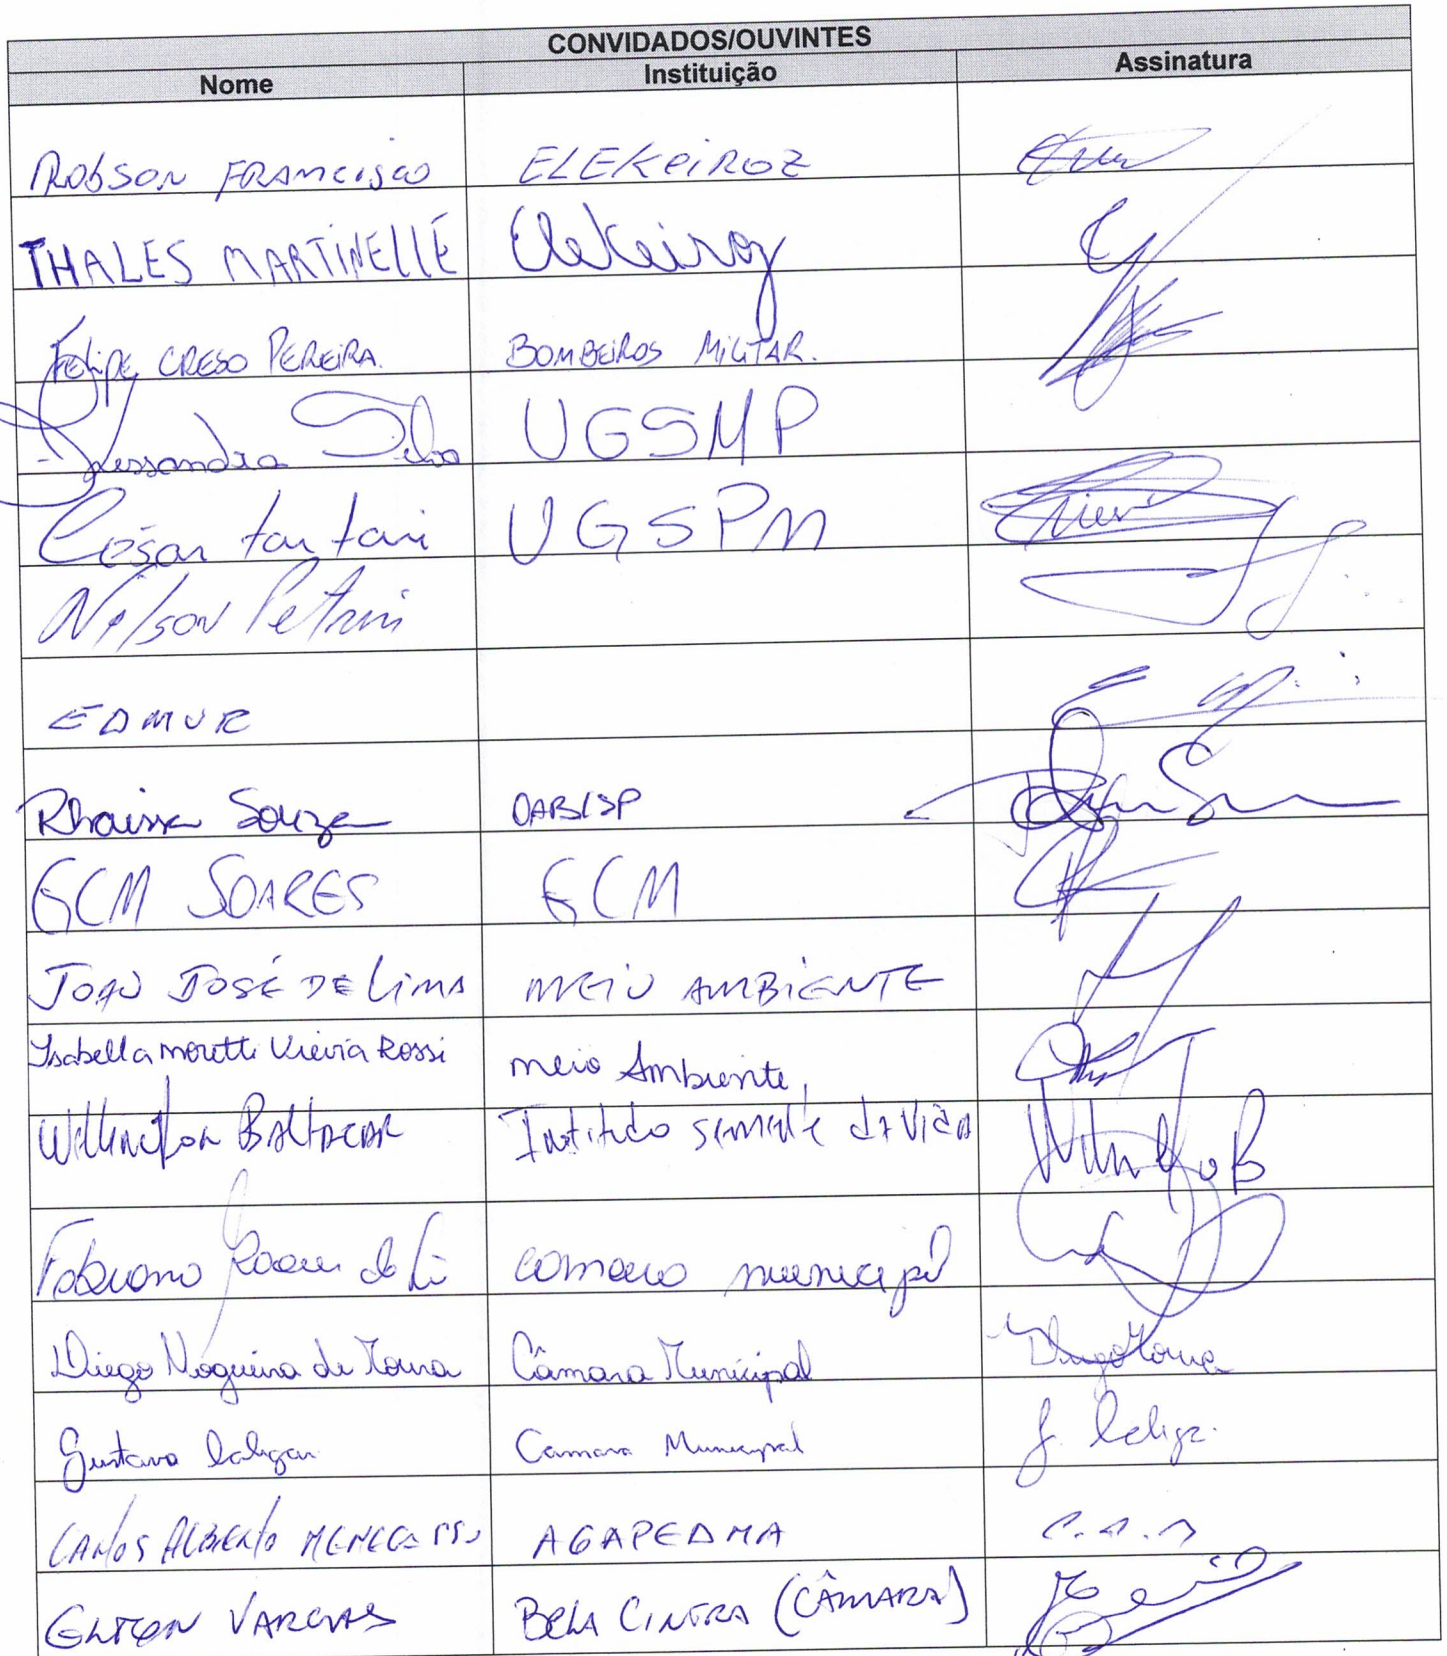 CONVIDADOS/OUVINTES
Nome Instituição Assinatura
ROBSON FRANCISCO ELEKEIROZ
THALES MARTINELLE Elekeiroz
FELIPE CRESO PEREIRA. BOMBEIROS MILITAR.
Alessandra Silva UGSMP
César Tartari UGSPM
Nilson Petrini
EDMUR
Rhaissa Souza OAB/SP
GCM SOARES GCM
JOAO JOSÉ DE LIMA MEIO AMBIENTE
Isabella moretti Vieira Rossi meio Ambiente,
Wellington BALTAZAR Instituto semente da Vida
Fabiano camara municipal
Diego Nogueira de Moura Câmara Municipal Diego Moura
Gustavo Camara Municipal
CARLOS ALBERTO AGAPEDMA C.A.M
VARGAS BELA CINTRA (CÂMARA)